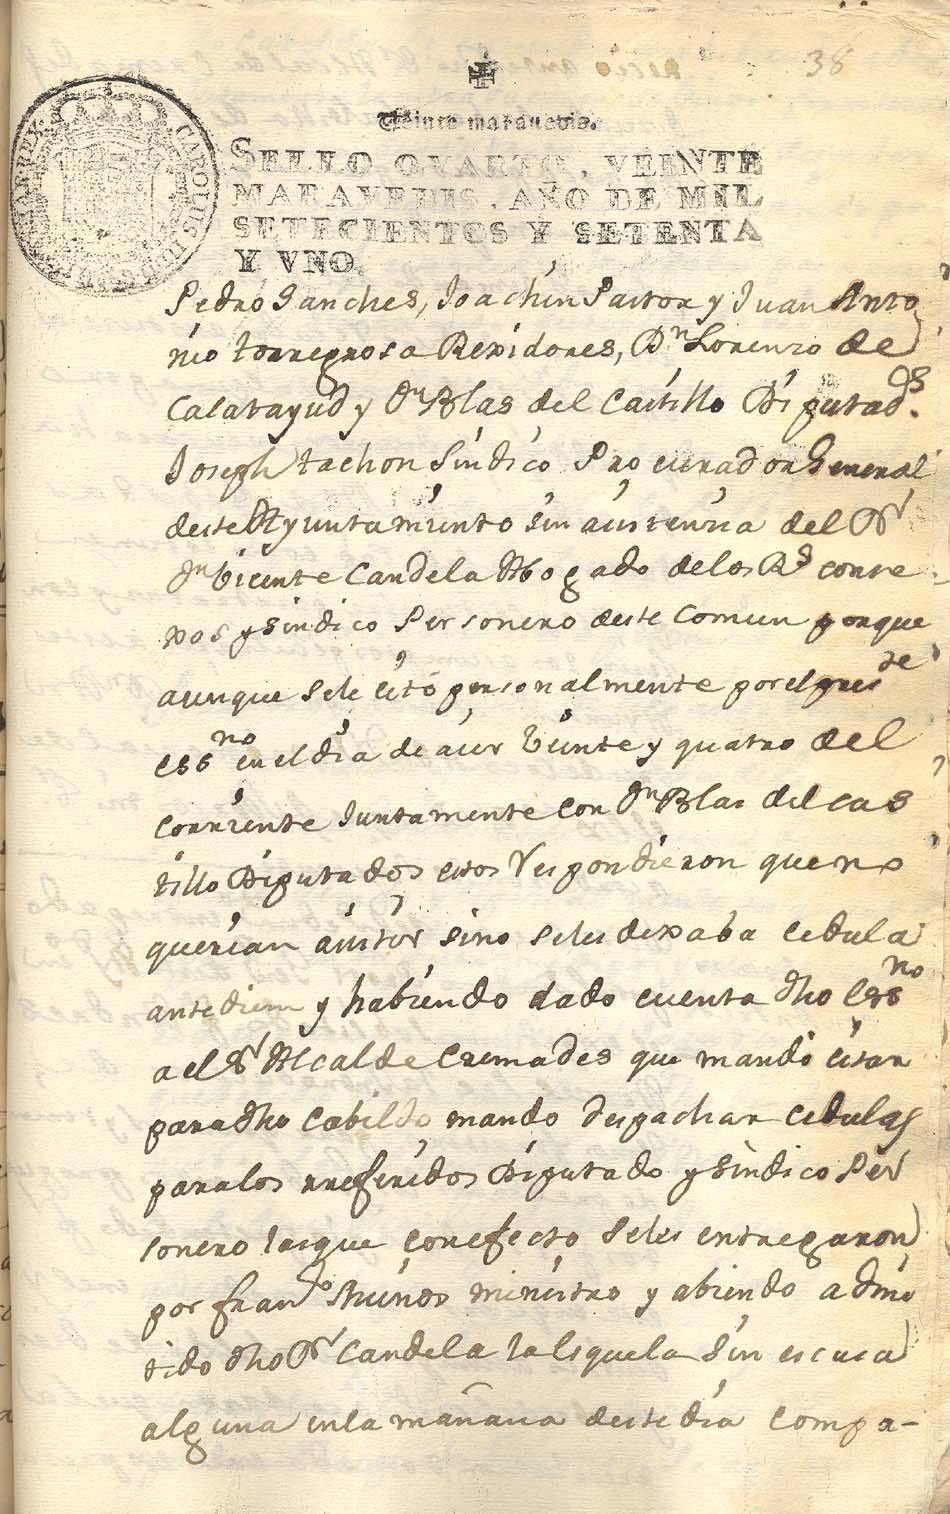 38
Veinte marauedis.
SELLO QVARTO, VEINTE
MARAVEDIS, AÑO DE MIL
SETECIENTOS Y SETENTA
Y VNO.
CAROLUS III D G HISPANIAR REX
Pedro Sanches, Joachin Pastor y Juan Anto
nio torregrosa Rexidores, Dn Lorenzo de
Calatayud y Dn Blas del Castillo Diputados.
Joseph tachon Sindico Procurador General
deste Ayuntamiento sin asistencia del Dr
Dn Vicente Candela Abogado delos Rs conse
xos y sindico Personero deste Comun porque
aunque sele citó personalmente por el preste
essno en el dia de aier veinte y quatro del
corriente Juntamente con Dn Blas del cas
tillo Diputados estos respondieron que no
querian asistir sino seles dexaba cedula
antediem y habiendo dado cuenta dho essno
a el Sr Alcalde Cremades que mandó citar
para dho Cabildo mando despachar cedulas
paralos rreferidos Diputado y sindico Per
sonero lasque con efecto seles entregaron
por Frando Muños ministro y abiendo admi
tido dho Dr Candela la esquela sin escusa
alguna en la mañana deste dia compa-